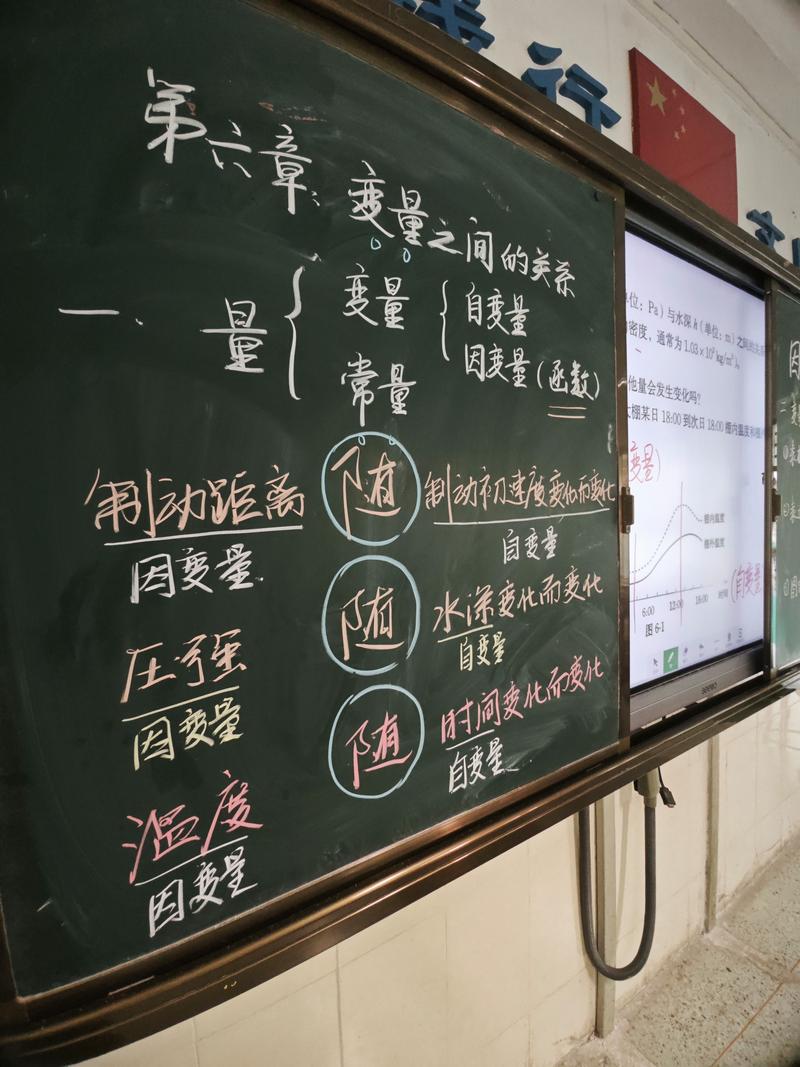 行
第六章：变量之间的关系
一、量
变量
自变量
因变量(函数)
常量
制动距离 随 制动初速度变化而变化
因变量
自变量
压强 随 水深变化而变化
因变量
自变量
温度 随 时间变化而变化
因变量
自变量
位：Pa）与水深h（单位：m）之间的关系
密度，通常为1.03×10³kg/m³）。
他量会发生变化吗？
棚某日18:00到次日18:00棚内温度和棚
变量)
棚内温度
棚外温度
6:00 12:00 18:00 时间
(自变量
图6-1
seewo
因